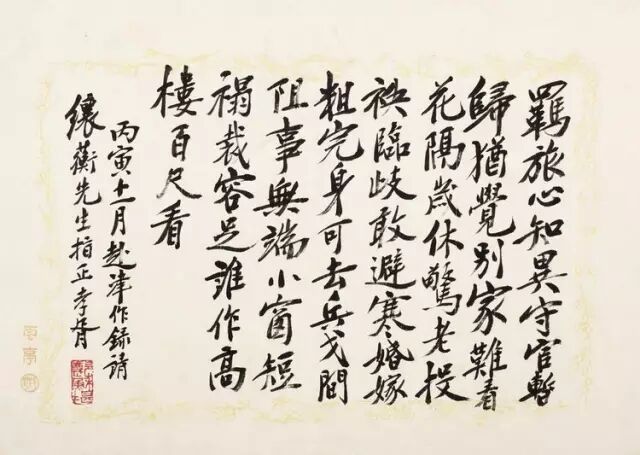 羈旅心知異守官暫
歸猶覺別家難看
花隔歲休驚老投
袂臨歧敢避寒婚嫁
粗完身可去兵戈間
阻事無端小窗短
褐裁容足誰作高
樓百尺看
丙寅十一月赴津作録請
纕蘅先生指正孝胥